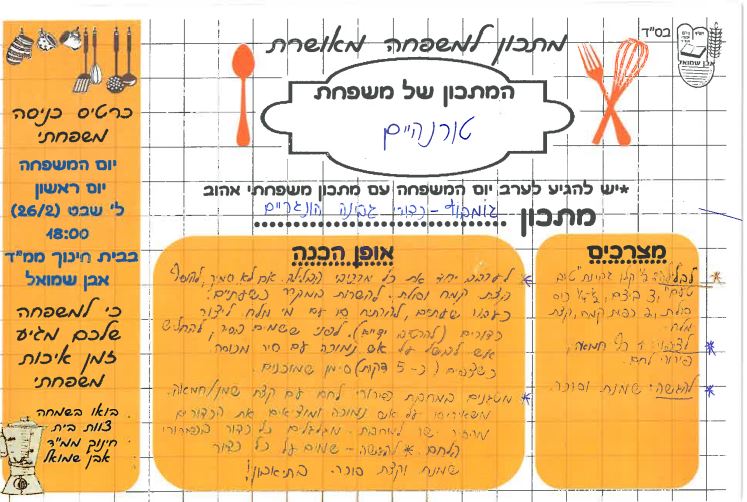 בס"ד
אבן שמואל
מתכון למשפחה מאושרת
המתכון של משפחת
טורנהיים
*יש להגיע לערב יום המשפחה עם מתכון משפחתי אהוב
מתכון גומבוץ - כדורי גבינה הונגריים
מצרכים
לבלילה: ½ קילו גבינת "טוב
טעם", 3 ביצים, ½ כוס
סולת, 2 כפות קמח, קצת
מלח.
לציפוי: חמאה,
פירורי לחם.
להגשה: שמנת וסוכר.
אופן הכנה
לערבב יחד את כל מרכיבי הבלילה. אם לא סמיך, להוסיף
קצת קמח וסולת. להשרות במקרר כשעתיים.
כעבור שעתיים, להרתיח סיר עם מי מלח ליצור
כדורים (להרטיב ידיים). לפני ששמים בסיר, להחליש
אש. לבשל על אש נמוכה עם סיר מכוסה.
כשצפים (כ-5 דקות) סימן שמוכנים.
מטגנים במחבת פירורי לחם עם קצת שמן/חמאה.
משאירים על אש נמוכה ומוציאים את הכדורים
מהסיר ישר למחבת. מגלגלים כל כדור בפירורי
הלחם. * להגשה - שמים על כל כדור
שמנת וקצת סוכר. בתיאבון!
כרטיס כניסה
משפחתי
יום המשפחה
יום ראשון
ל' שבט (26/2)
18:00
בבית חינוך ממ"ד
אבן שמואל
כי למשפחה
שלכם מגיע
זמן איכות
משפחתי
בואו בשמחה
צוות בית
חינוך ממ"ד
אבן שמואל